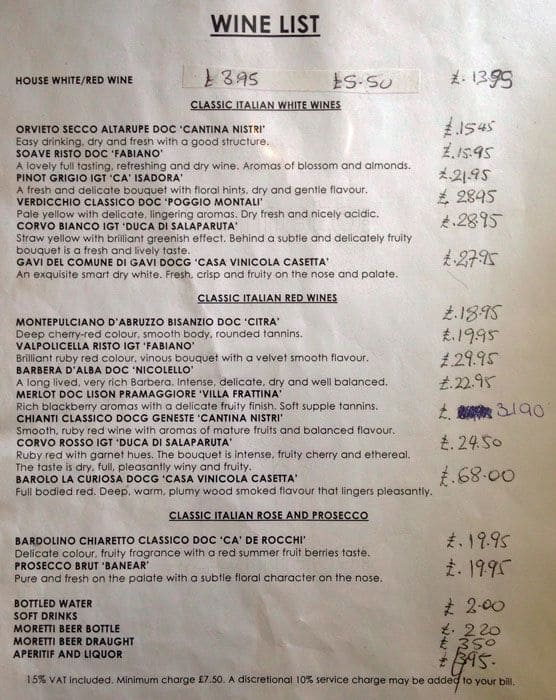 WINE LIST
HOUSE WHITE/RED WINE £3.95 £5.50 £.13.95
CLASSIC ITALIAN WHITE WINES
ORVIETO SECCO ALTARUPE DOC 'CANTINA NISTRI' £.15.45
Easy drinking, dry and fresh with a good structure.
SOAVE RISTO DOC 'FABIANO' £.15.95
A lovely full tasting, refreshing and dry wine. Aromas of blossom and almonds.
PINOT GRIGIO IGT 'CA' ISADORA' £.21.95
A fresh and delicate bouquet with floral hints, dry and gentle flavour.
VERDICCHIO CLASSICO DOC 'POGGIO MONTALI' £.28.95
Pale yellow with delicate, lingering aromas. Dry fresh and nicely acidic.
CORVO BIANCO IGT 'DUCA DI SALAPARUTA' £.28.95
Straw yellow with brilliant greenish effect. Behind a subtle and delicately fruity
bouquet is a fresh and lively taste.
GAVI DEL COMUNE DI GAVI DOCG 'CASA VINICOLA CASETTA' £.27.95
An exquisite smart dry white. Fresh, crisp and fruity on the nose and palate.
CLASSIC ITALIAN RED WINES
MONTEPULCIANO D'ABRUZZO BISANZIO DOC 'CITRA' £.18.95
Deep cherry-red colour, smooth body, rounded tannins.
VALPOLICELLA RISTO IGT 'FABIANO' £.19.95
Brilliant ruby red colour, vinous bouquet with a velvet smooth flavour.
BARBERA D'ALBA DOC 'NICOLELLO' £.29.95
A long lived, very rich Barbera. Intense, delicate, dry and well balanced.
MERLOT DOC LISON PRAMAGGIORE 'VILLA FRATTINA' £.22.95
Rich blackberry aromas with a delicate fruity finish. Soft supple tannins.
CHIANTI CLASSICO DOCG GENESTE 'CANTINA NISTRI' £. 31.90
Smooth, ruby red wine with aromas of mature fruits and balanced flavour.
CORVO ROSSO IGT 'DUCA DI SALAPARUTA' £.24.50
Ruby red with garnet hues. The bouquet is intense, fruity cherry and ethereal.
The taste is dry, full, pleasantly winy and fruity.
BAROLO LA CURIOSA DOCG 'CASA VINICOLA CASETTA' £.68.00
Full bodied red. Deep, warm, plumy wood smoked flavour that lingers pleasantly.
CLASSIC ITALIAN ROSE AND PROSECCO
BARDOLINO CHIARETTO CLASSICO DOC 'CA' DE ROCCHI' £.19.95
Delicate colour, fruity fragrance with a red summer fruit berries taste.
PROSECCO BRUT 'BANEAR' £.19.95
Pure and fresh on the palate with a subtle floral character on the nose.
BOTTLED WATER £ 2.00
SOFT DRINKS
MORETTI BEER BOTTLE £. 2.20
MORETTI BEER DRAUGHT £ 3.50
APERITIF AND LIQUOR £ 3.95.
15% VAT included. Minimum charge £7.50. A discretional 10% service charge may be added to your bill.